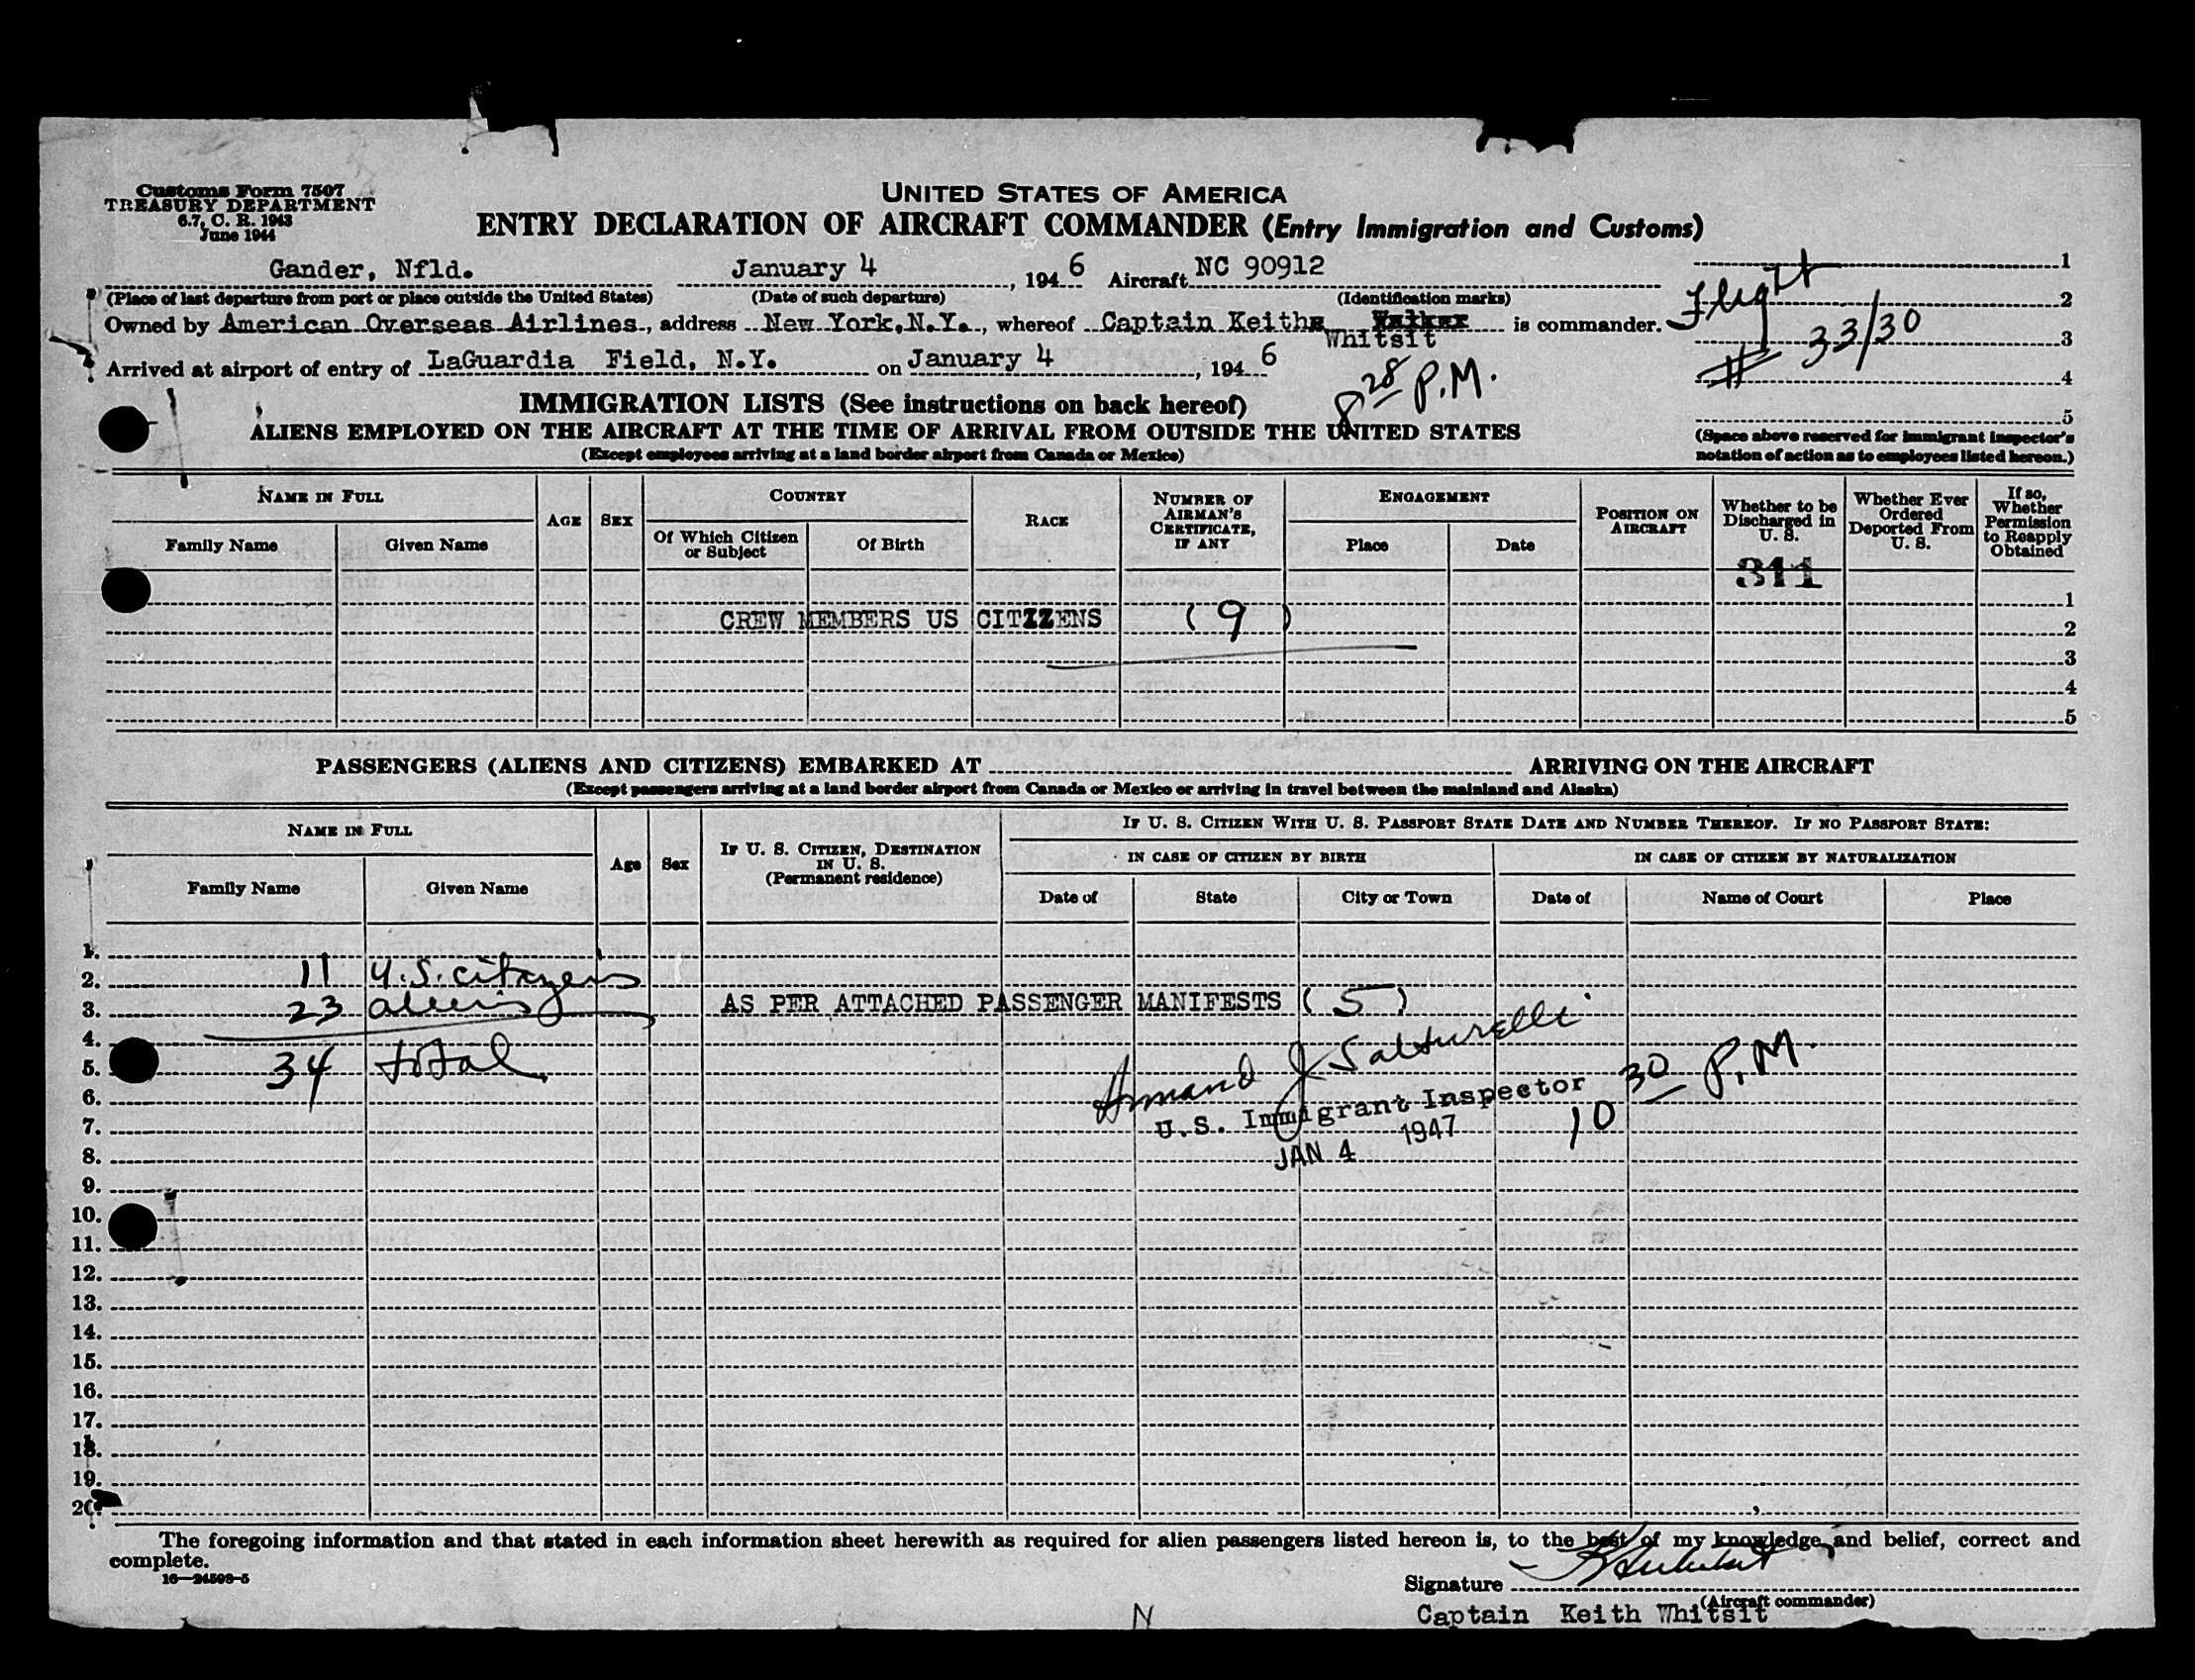 Customs Form 7507
TREASURY DEPARTMENT
6.7, C. R. 1943
June 1944
UNITED STATES OF AMERICA
ENTRY DECLARATION OF AIRCRAFT COMMANDER (Entry Immigration and Customs)
Gander, Nfld. January 4, 194 6 Aircraft NC 90912
(Place of last departure from port or place outside the United States) (Date of such departure) (Identification marks)
Owned by American Overseas Airlines, address New York, N.Y., whereof Captain Keith Whitsit is commander.
Arrived at airport of entry of LaGuardia Field, N.Y. on January 4, 194 6
8 28 P.M.
Flight
# 33/30
1
2
3
4
5
(Space above reserved for immigrant inspector's
notation of action as to employees listed hereon.)
IMMIGRATION LISTS (See instructions on back hereof)
ALIENS EMPLOYED ON THE AIRCRAFT AT THE TIME OF ARRIVAL FROM OUTSIDE THE UNITED STATES
(Except employees arriving at a land border airport from Canada or Mexico)
NAME IN FULL
Family Name Given Name
AGE
SEX
COUNTRY
Of Which Citizen or Subject
Of Birth
RACE
NUMBER OF AIRMAN'S CERTIFICATE, IF ANY
ENGAGEMENT
Place Date
POSITION ON AIRCRAFT
Whether to be Discharged in U. S.
Whether Ever Ordered Deported From U. S.
If so, Whether Permission to Reapply Obtained
311
1
CREW MEMBERS US CITZZENS ( 9 ) 2
3
4
5
PASSENGERS (ALIENS AND CITIZENS) EMBARKED AT ARRIVING ON THE AIRCRAFT
(Except passengers arriving at a land border airport from Canada or Mexico or arriving in travel between the mainland and Alaska)
NAME IN FULL
Family Name Given Name
Age
Sex
IF U. S. CITIZEN, DESTINATION IN U. S. (Permanent residence)
IF U. S. CITIZEN WITH U. S. PASSPORT STATE DATE AND NUMBER THEREOF. IF NO PASSPORT STATE:
IN CASE OF CITIZEN BY BIRTH
IN CASE OF CITIZEN BY NATURALIZATION
Date of State City or Town Date of Name of Court Place
1.
2. 11 U.S. citizens
3. 23 aliens AS PER ATTACHED PASSENGER MANIFESTS ( 5 )
4.
5. 34 total
Armand J Salturelli
U.S. Immigrant Inspector
JAN 4 1947
10 30 P.M.
6.
7.
8.
9.
10.
11.
12.
13.
14.
15.
16.
17.
18.
19.
20.
The foregoing information and that stated in each information sheet herewith as required for alien passengers listed hereon is, to the best of my knowledge and belief, correct and
complete.
16—24598-5
Signature
(Aircraft commander)
Captain Keith Whitsit
N